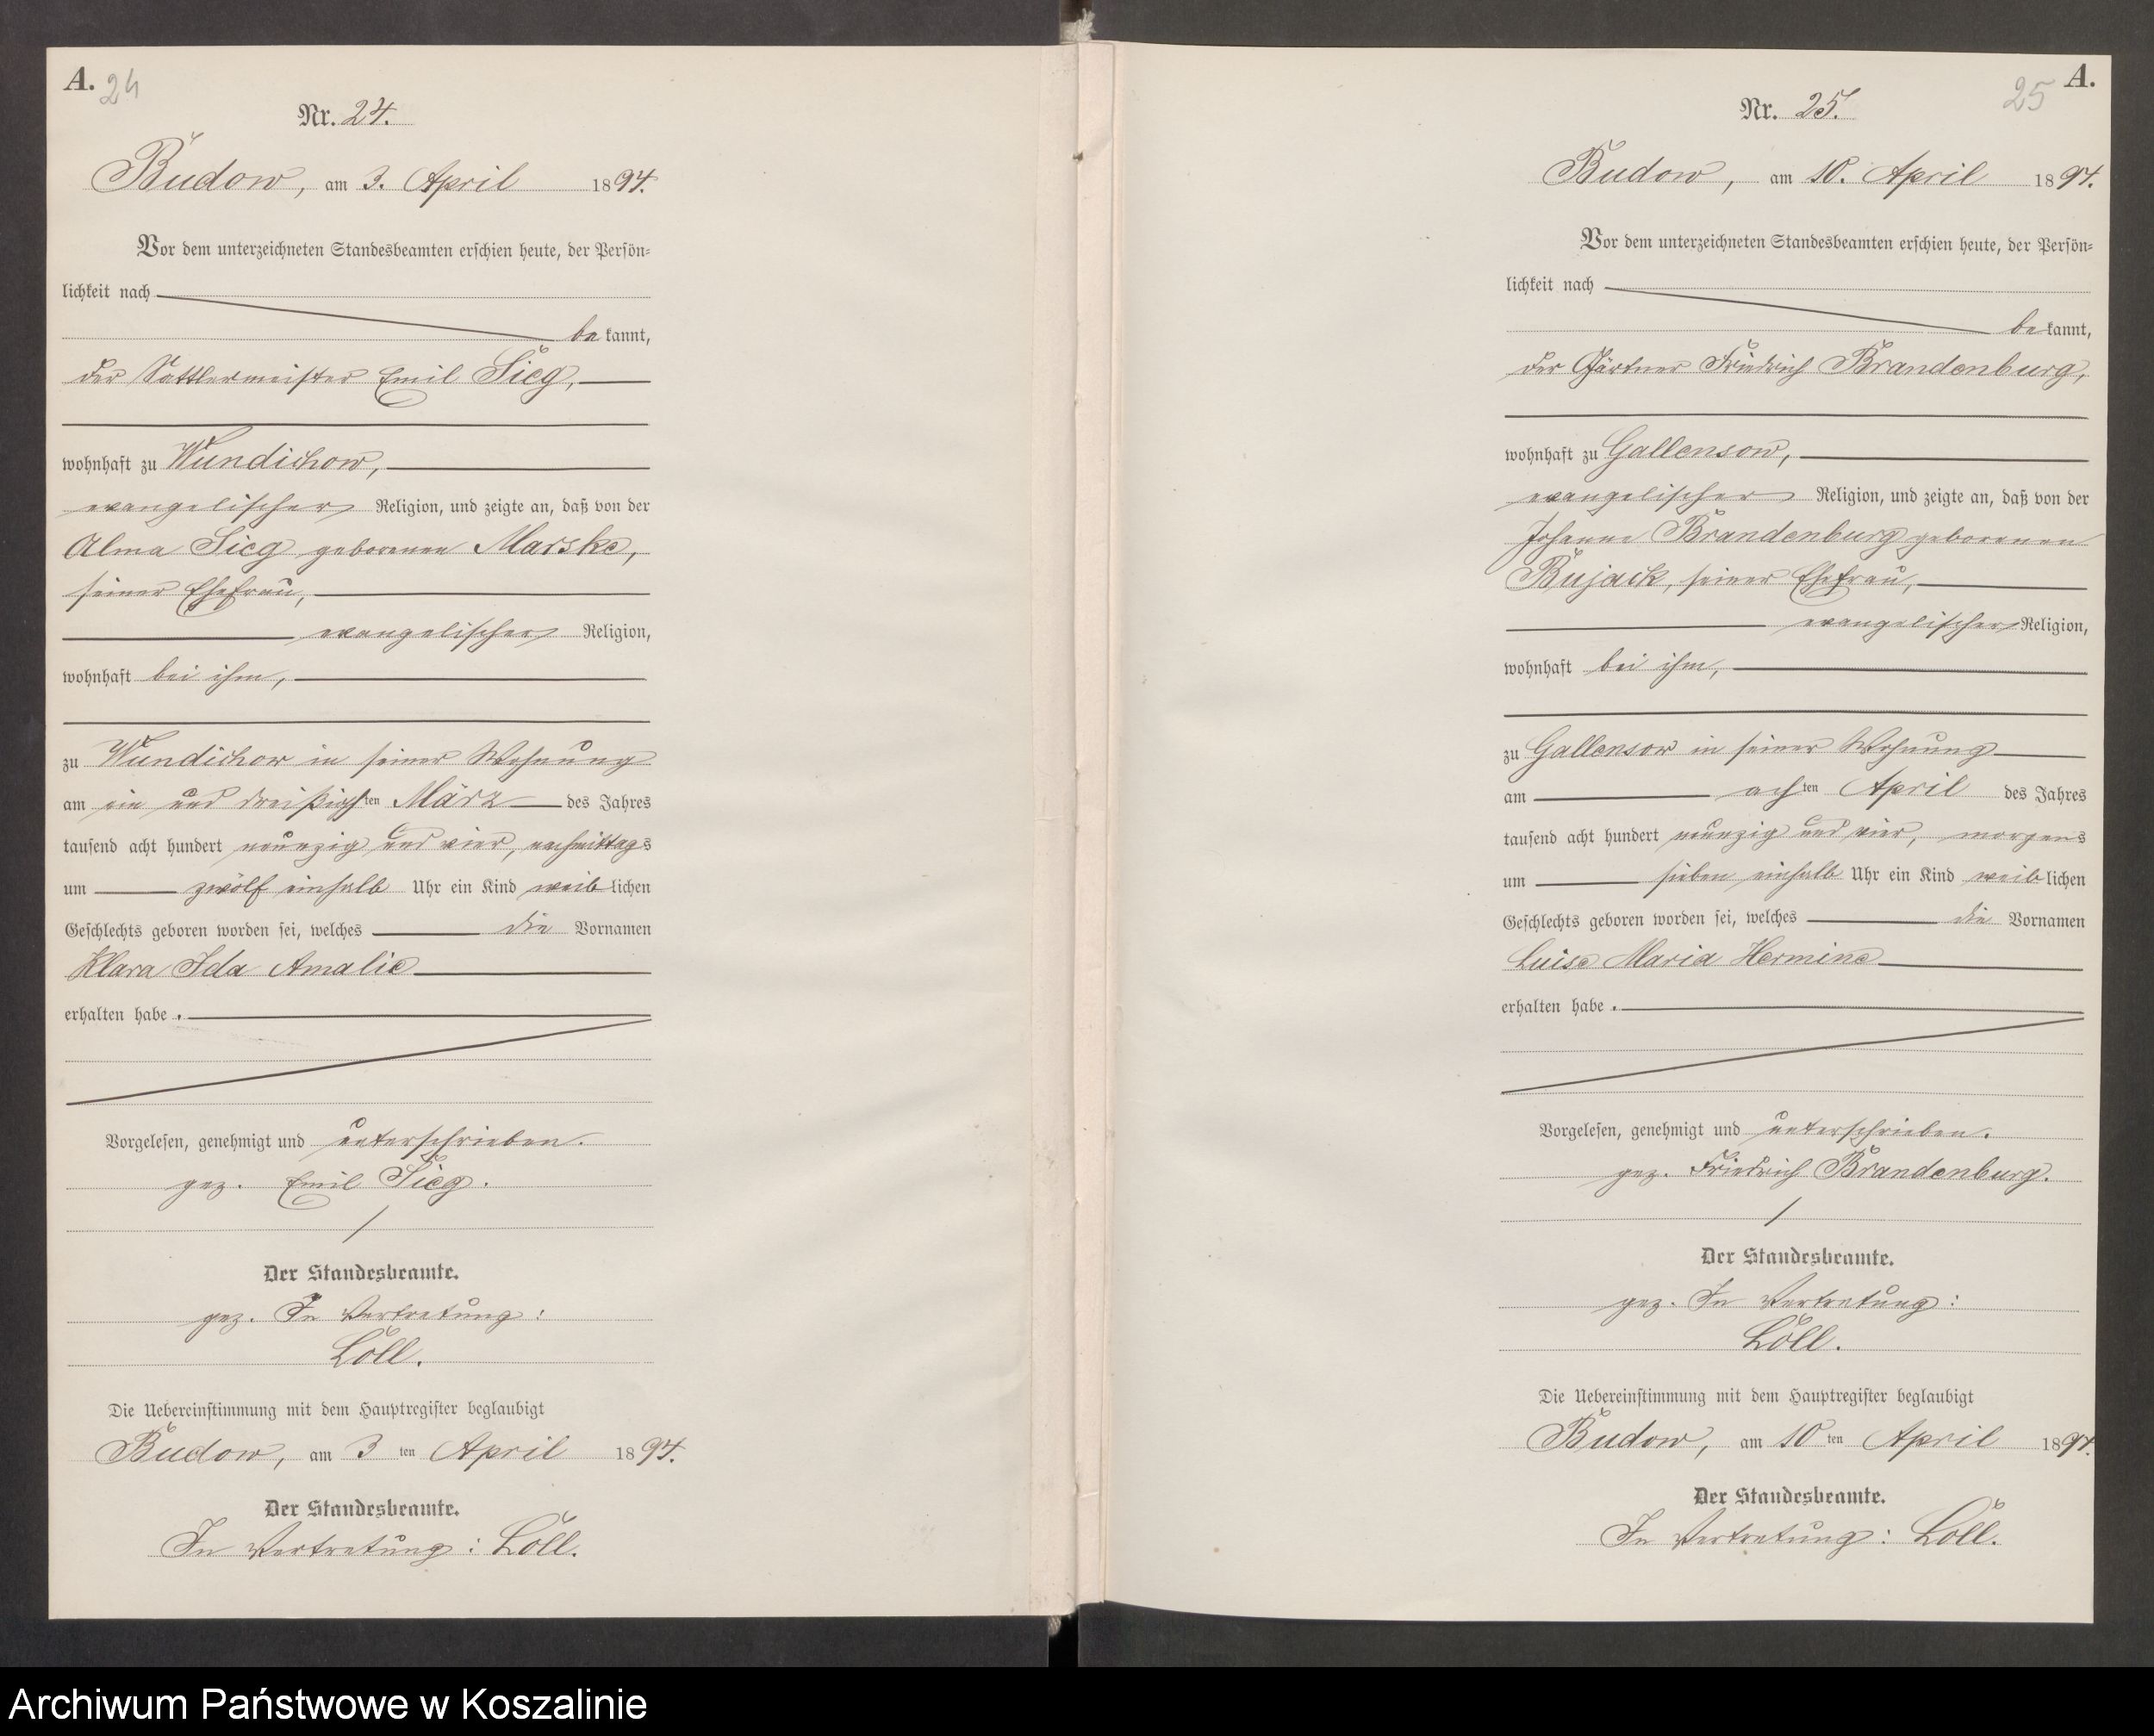 A. 24
Nr. 24.
Budow, am 3. April 1894.
Vor dem unterzeichneten Standesbeamten erschien heute, der Persön-
lichkeit nach
be kannt,
der Sattlermeister Emil Sieg,
wohnhaft zu Wundichow,
evangelischer Religion, und zeigte an, daß von der
Alma Sieg geborenen Marske,
seiner Ehefrau,
evangelischer Religion,
wohnhaft bei ihm,
zu Wundichow in seiner Wohnung
am ein und dreißigsten März des Jahres
tausend acht hundert neunzig und vier, nachmittags
um zwölf einhalb Uhr ein Kind weiblichen
Geschlechts geboren worden sei, welches die Vornamen
Klara Ida Amalie
erhalten habe.
Vorgelesen, genehmigt und unterschrieben.
gez. Emil Sieg.
Der Standesbeamte.
gez. In Vertretung:
Löll.
Die Uebereinstimmung mit dem Hauptregister beglaubigt
Budow, am 3 ten April 1894.
Der Standesbeamte.
In Vertretung: Löll.
25 A.
Nr. 25.
Budow, am 10. April 1894.
Vor dem unterzeichneten Standesbeamten erschien heute, der Persön-
lichkeit nach
be kannt,
der Gärtner Friedrich Brandenburg,
wohnhaft zu Gallensow,
evangelischer Religion, und zeigte an, daß von der
Johanne Brandenburg geborenen
Bujack, seiner Ehefrau,
evangelischer Religion,
wohnhaft bei ihm,
zu Gallensow in seiner Wohnung
am achten April des Jahres
tausend acht hundert neunzig und vier, morgens
um sieben einhalb Uhr ein Kind weiblichen
Geschlechts geboren worden sei, welches die Vornamen
Luise Maria Hermine
erhalten habe.
Vorgelesen, genehmigt und unterschrieben.
gez. Friedrich Brandenburg.
Der Standesbeamte.
gez. In Vertretung:
Löll.
Die Uebereinstimmung mit dem Hauptregister beglaubigt
Budow, am 10 ten April 1894.
Der Standesbeamte.
In Vertretung: Löll.
Archiwum Państwowe w Koszalinie